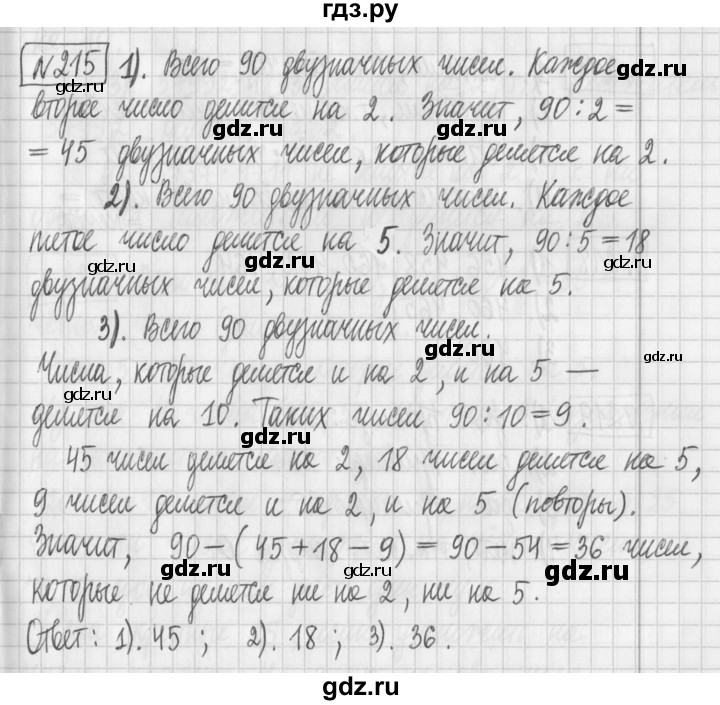 гдз.ру
№215 1). Всего 90 двузначных чисел. Каждое
gdz.ru gdz.ru
второе число делится на 2. Значит, 90:2=
gdz.ru
= 45 двузначных чисел, которые делятся на 2.
gdz.ru
2). Всего 90 двузначных чисел. Каждое
пятое число делится на 5. Значит, 90:5=18
gdz.ru gdz.ru gdz.ru
двузначных чисел, которые делятся на 5.
3). Всего 90 двузначных чисел.
gdz.ru gdz.ru
Числа, которые делятся и на 2, и на 5 —
gdz.ru
делятся на 10. Таких чисел 90:10=9.
gdz.ru
45 чисел делятся на 2, 18 чисел делятся на 5,
gdz.ru gdz.ru
9 чисел делятся и на 2, и на 5 (повторы).
Значит, 90-(45+18-9)=90-54=36 чисел,
gdz.ru gdz.ru gdz.ru
которые не делятся ни на 2, ни на 5.
Ответ: 1). 45; 2). 18; 3). 36.
gdz.ru gdz.ru
gdz.ru